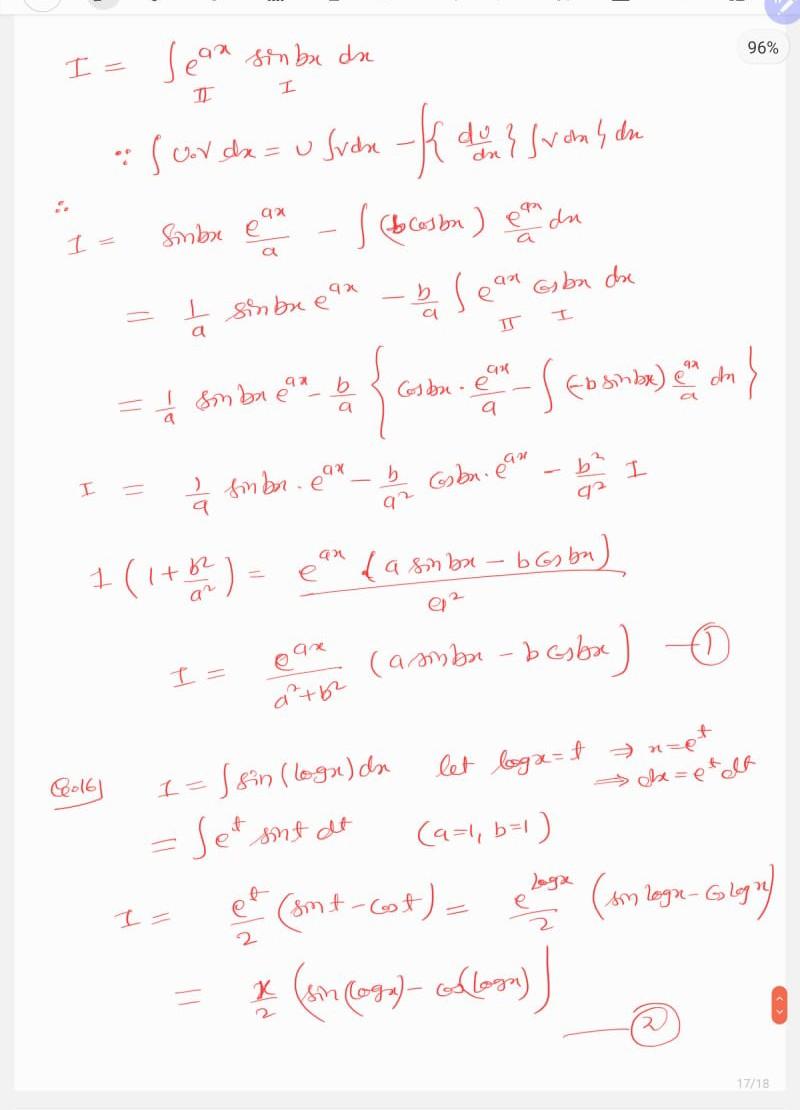 I = ∫ e^{ax} sin bx dx
II I
96%
∵ ∫ u.v dx = u ∫ v dx - ∫{ {du/dx} ∫ v dx } dx
∴
I = sin bx e^{ax}/a - ∫ (b cos bx) e^{ax}/a dx
= 1/a sin bx e^{ax} - b/a ∫ e^{ax} cos bx dx
II I
= 1/a sin bx e^{ax} - b/a { cos bx · e^{ax}/a - ∫ (-b sin bx) e^{ax}/a dx }
I = 1/a sin bx · e^{ax} - b/a² cos bx · e^{ax} - b²/a² I
I (1 + b²/a²) = e^{ax} (a sin bx - b cos bx) / a²
I = e^{ax}/(a²+b²) (a sin bx - b cos bx) — ①
Q.16) I = ∫ sin (log x) dx let log x = t ⇒ x = e^t
⇒ dx = e^t dt
= ∫ e^t sin t dt (a=1, b=1)
I = e^t/2 (sin t - cos t) = e^{log x}/2 (sin log x - cos log x)
= x/2 (sin (log x) - cos (log x)) — ②
17/18